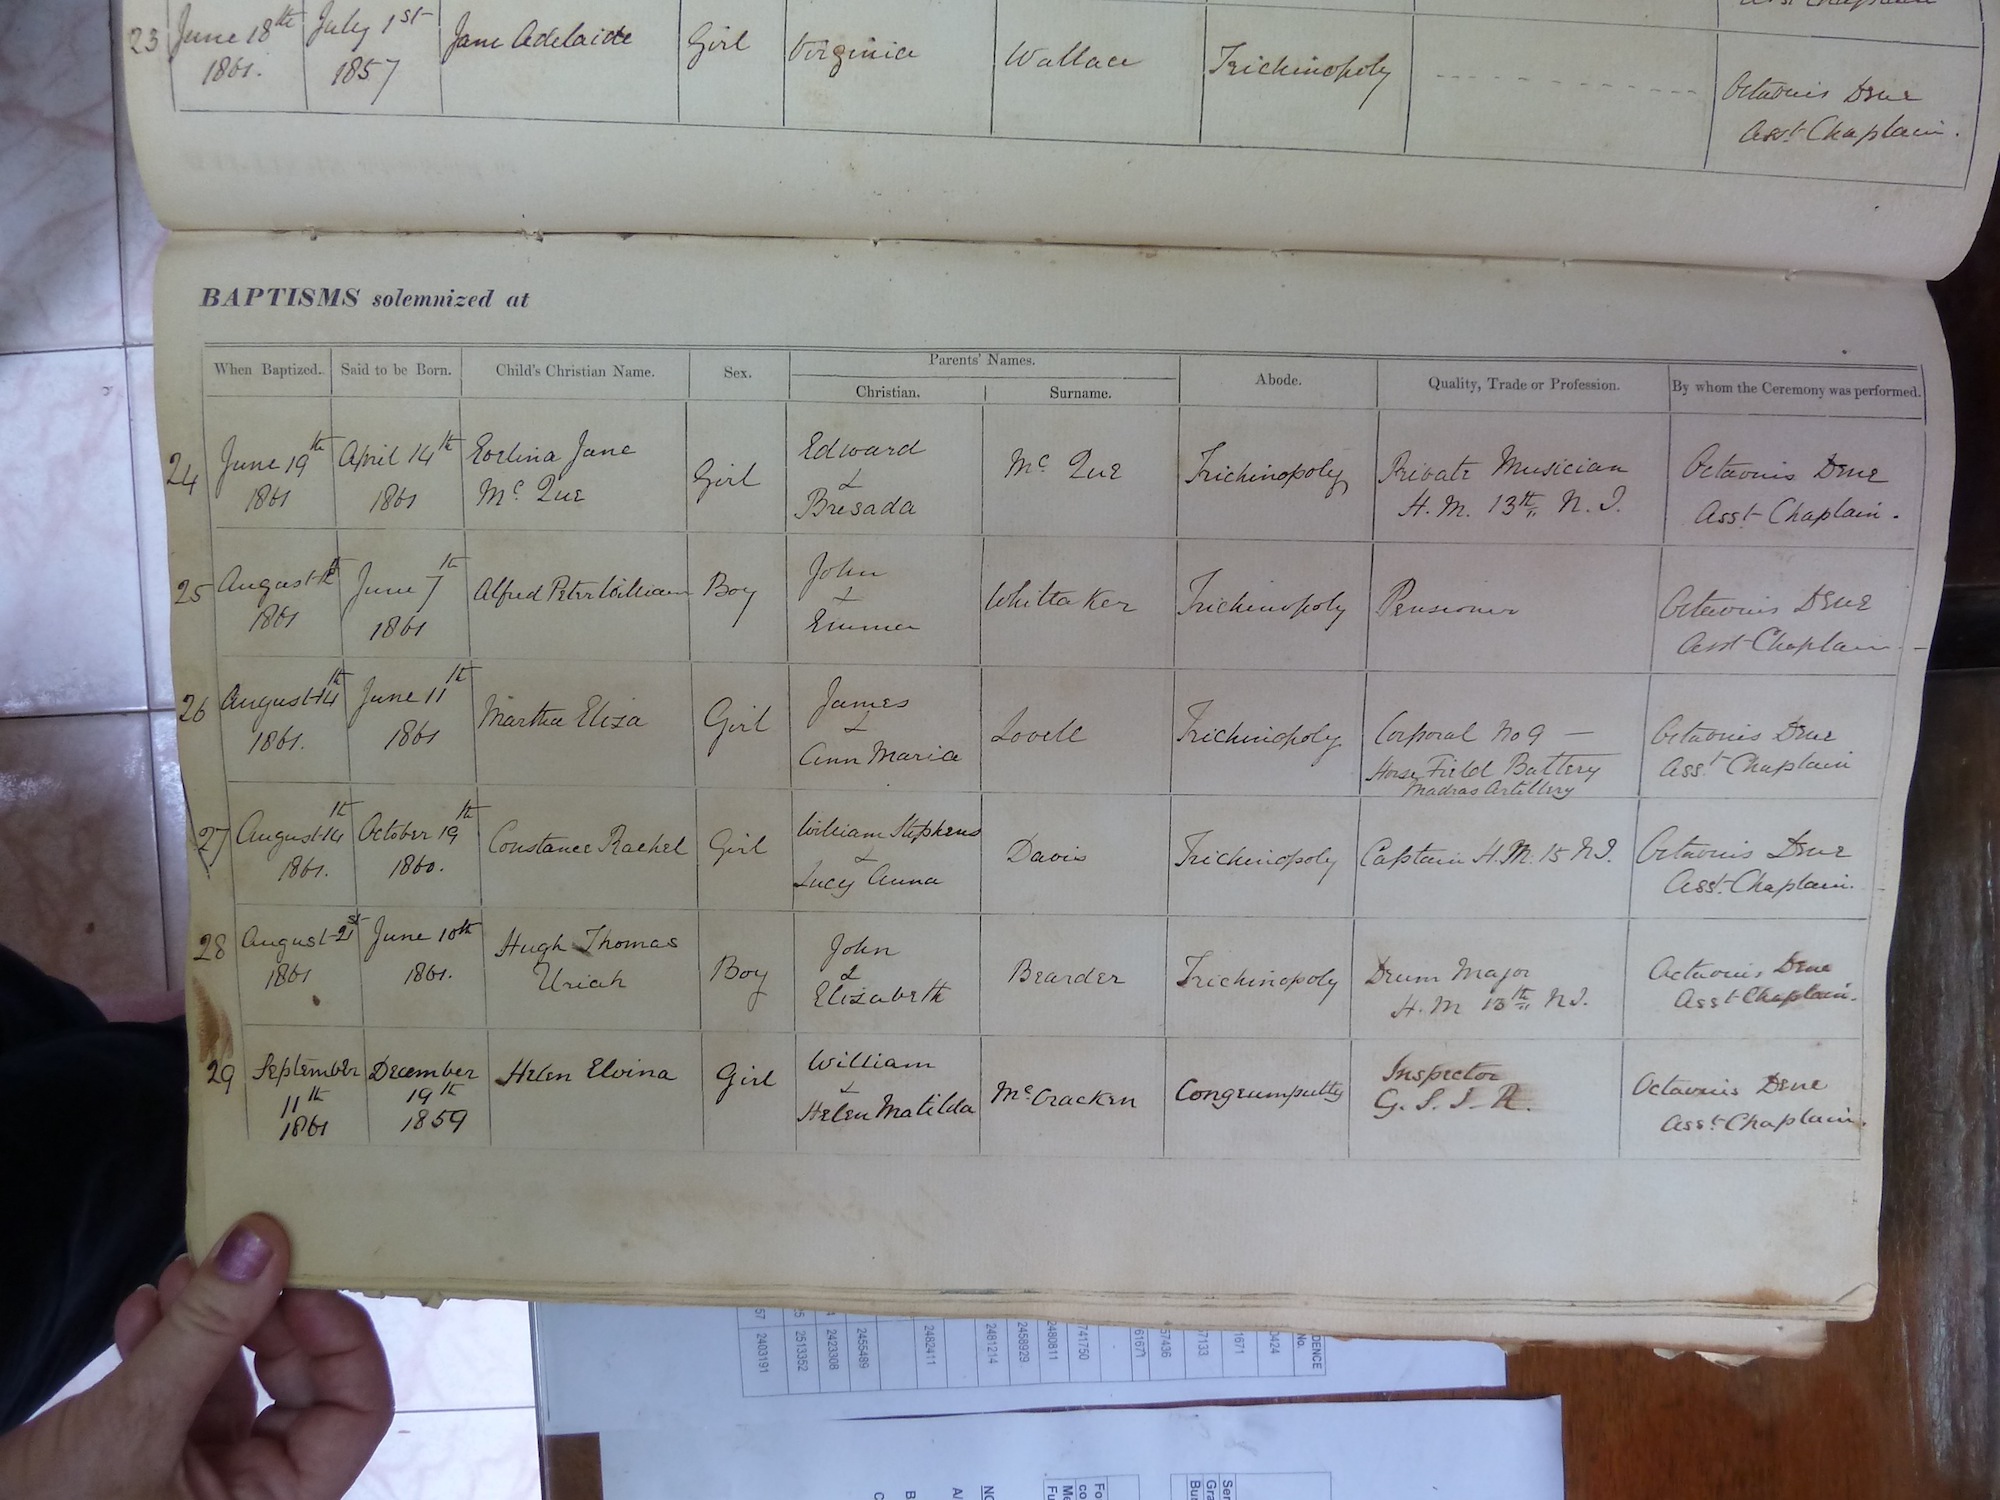 23 June 18th July 1st Jane Adelaide Girl Virginia Wallace Trichinopoly
1861. 1857
Octavius Dene
Asst Chaplain.
BAPTISMS solemnized at
When Baptized. Said to be Born. Child's Christian Name. Sex. Parents' Names. Abode. Quality, Trade or Profession. By whom the Ceremony was performed.
Christian. Surname.
24 June 19th April 14th Evelina Jane Girl Edward Mc Que Trichinopoly Private Musician Octavius Dene
1861 1861 Mc Que & H. M. 13th N. I. Asst Chaplain.
Bresada
25 August June 7th Alfred Peter William Boy John Whittaker Trichinopoly Pensioner Octavius Dene
1861 1861 & Asst Chaplain
Emma
26 August 14th June 11th Martha Eliza Girl James Lovell Trichinopoly Corporal No 9 — Octavius Dene
1861. 1861 & Horse Field Battery Asst Chaplain
Ann Maria Madras Artillery
27 August 14th October 19th Constance Rachel Girl William Stephens Davis Trichinopoly Captain H. M. 15 N. I. Octavius Dene
1861. 1860. & Asst. Chaplain.
Lucy Anna
28 August 21st June 10th Hugh Thomas Boy John Bearder Trichinopoly Drum Major Octavius Dene
1861 1861. Uriah & H. M 13th N. I. Asst Chaplain.
Elizabeth
29 September December Helen Elvina Girl William McCracken Inspector Octavius Dene
11th 19th & G. S. I. R. Asst. Chaplain.
1861 1859 Helen Matilda
57 2403191
2513352
2423308
2455489
2482411
2481214
2458929
2480811
741750
61671
57436
7133
1671
0424
DENCE
No.